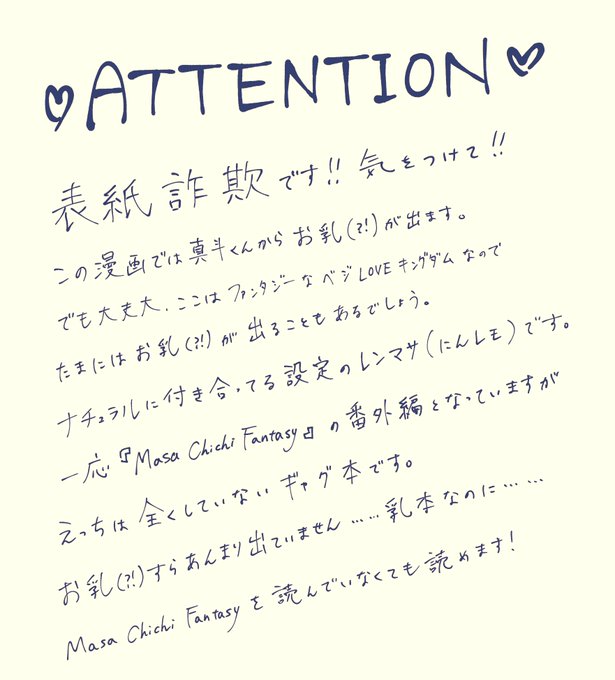 ♡ATTENTION♡
表紙詐欺です!! 気をつけて!!
この漫画では真斗くんからお乳(?!)が出ます。
でも大丈夫、ここはファンタジーなベジLOVEキングダムなので
たまにはお乳(?!)が出ることもあるでしょう。
ナチュラルに付き合ってる設定のレンマサ(にんレモ)です。
一応『Masa Chichi Fantasy』の番外編となっていますが
えっちは全くしていないギャグ本です。
お乳(?!)すらあんまり出ていません……乳本なのに……
Masa Chichi Fantasyを読んでいなくても読めます!